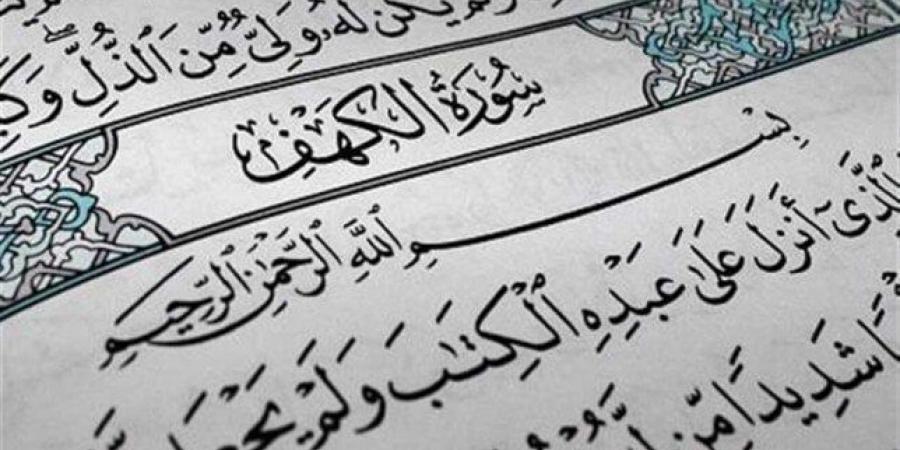 يَكُن لَّهُۥ وَلِىٌّ مِّنَ ٱلذُّلِّ ۖ
سُورَةُ الكَهْفِ
بِسْمِ ٱللَّهِ ٱلرَّحْمَٰنِ ٱلرَّحِيمِ
ٱلَّذِىٓ أَنزَلَ عَلَىٰ عَبْدِهِ ٱلْكِتَٰبَ وَلَمْ
شَدِيدًا مِّن